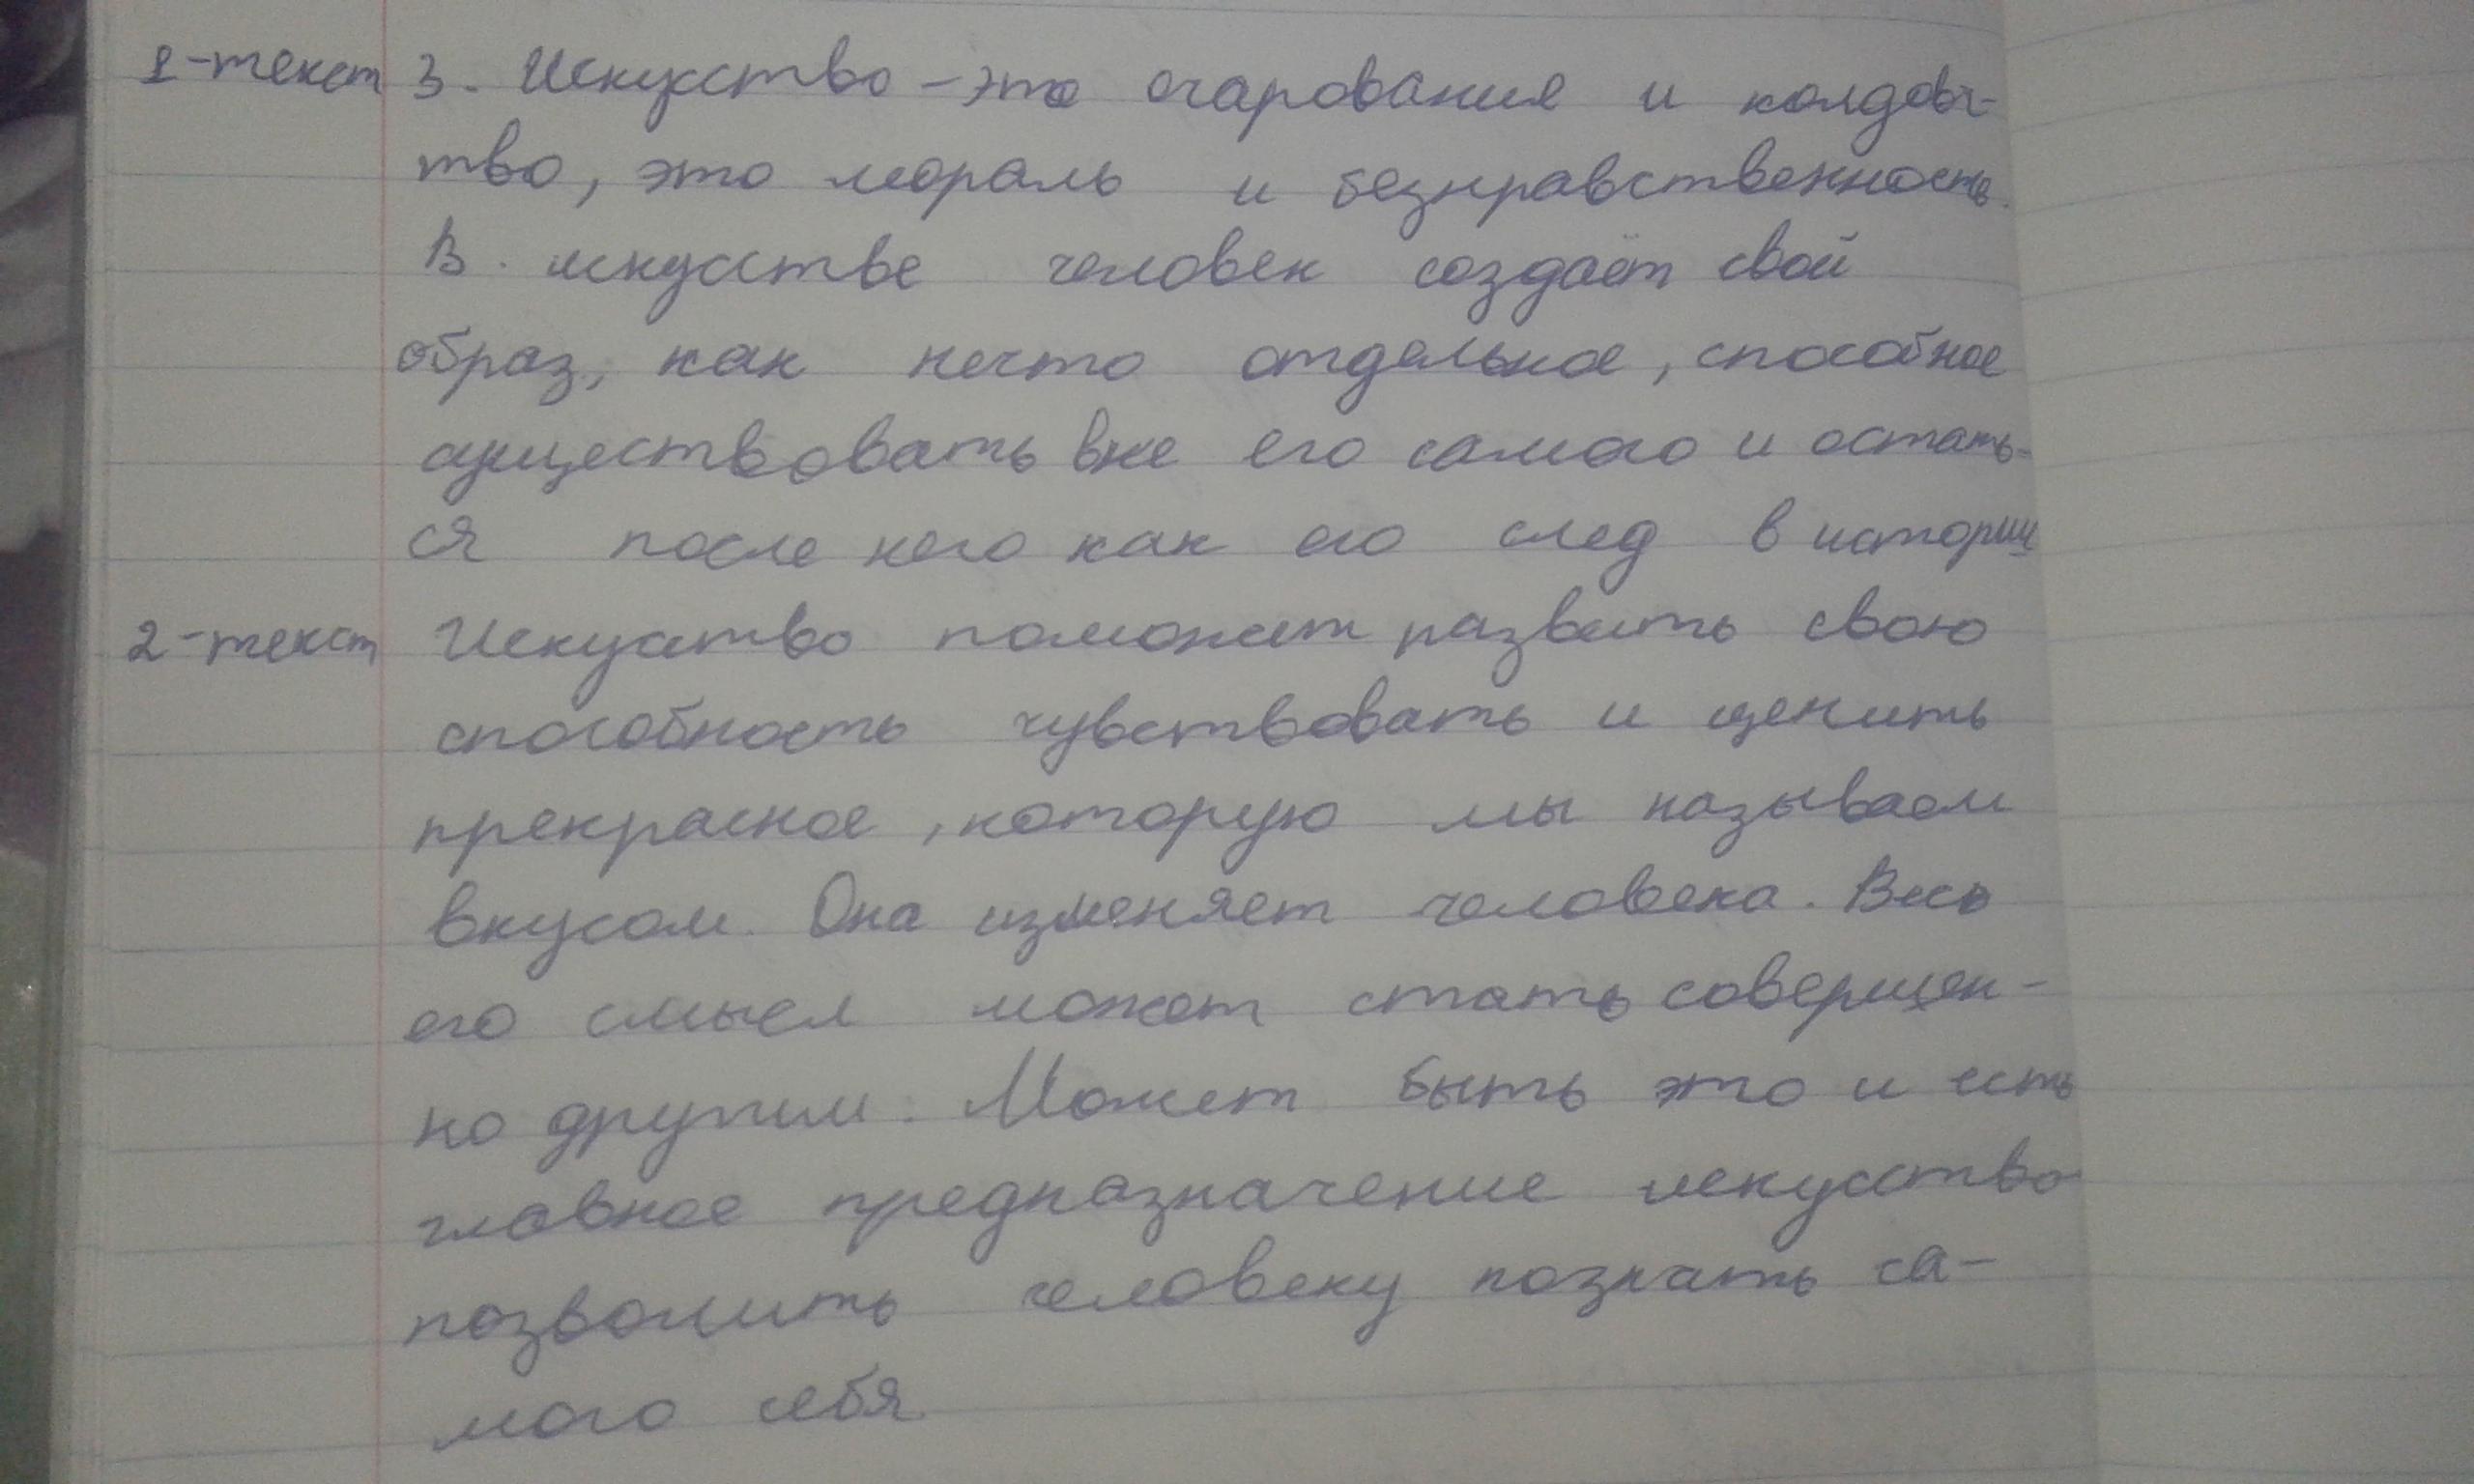 1-текст 3. Искусство - это очарование и колдовс-
тво, это мораль и безнравственность.
В искусстве человек создаёт свой
образ, как нечто отдельное, способное
существовать вне его самого и остать-
ся после него как его след в истории
2-текст Искусство поможет развить свою
способность чувствовать и ценить
прекрасное, которую мы называем
вкусом. Она изменяет человека. Весь
его смысл может стать совершен-
но другим. Может быть это и есть
главное предназначение искусство
позволить человеку познать са-
мого себя.